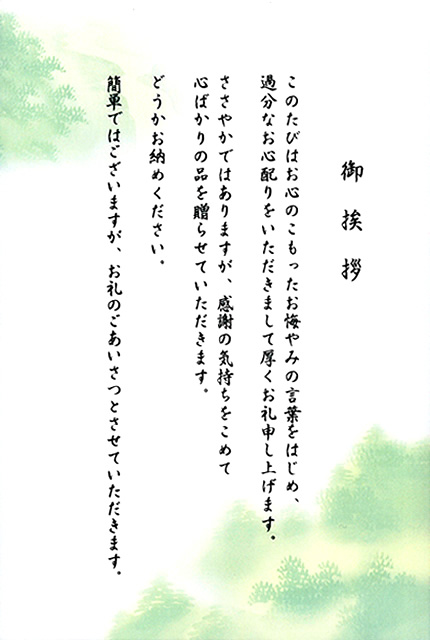 御挨拶
このたびはお心のこもったお悔やみの言葉をはじめ、
過分なお心配りをいただきまして厚くお礼申し上げます。
ささやかではありますが、感謝の気持ちをこめて
心ばかりの品を贈らせていただきます。
どうかお納めください。
簡単ではございますが、お礼のごあいさつとさせていただきます。